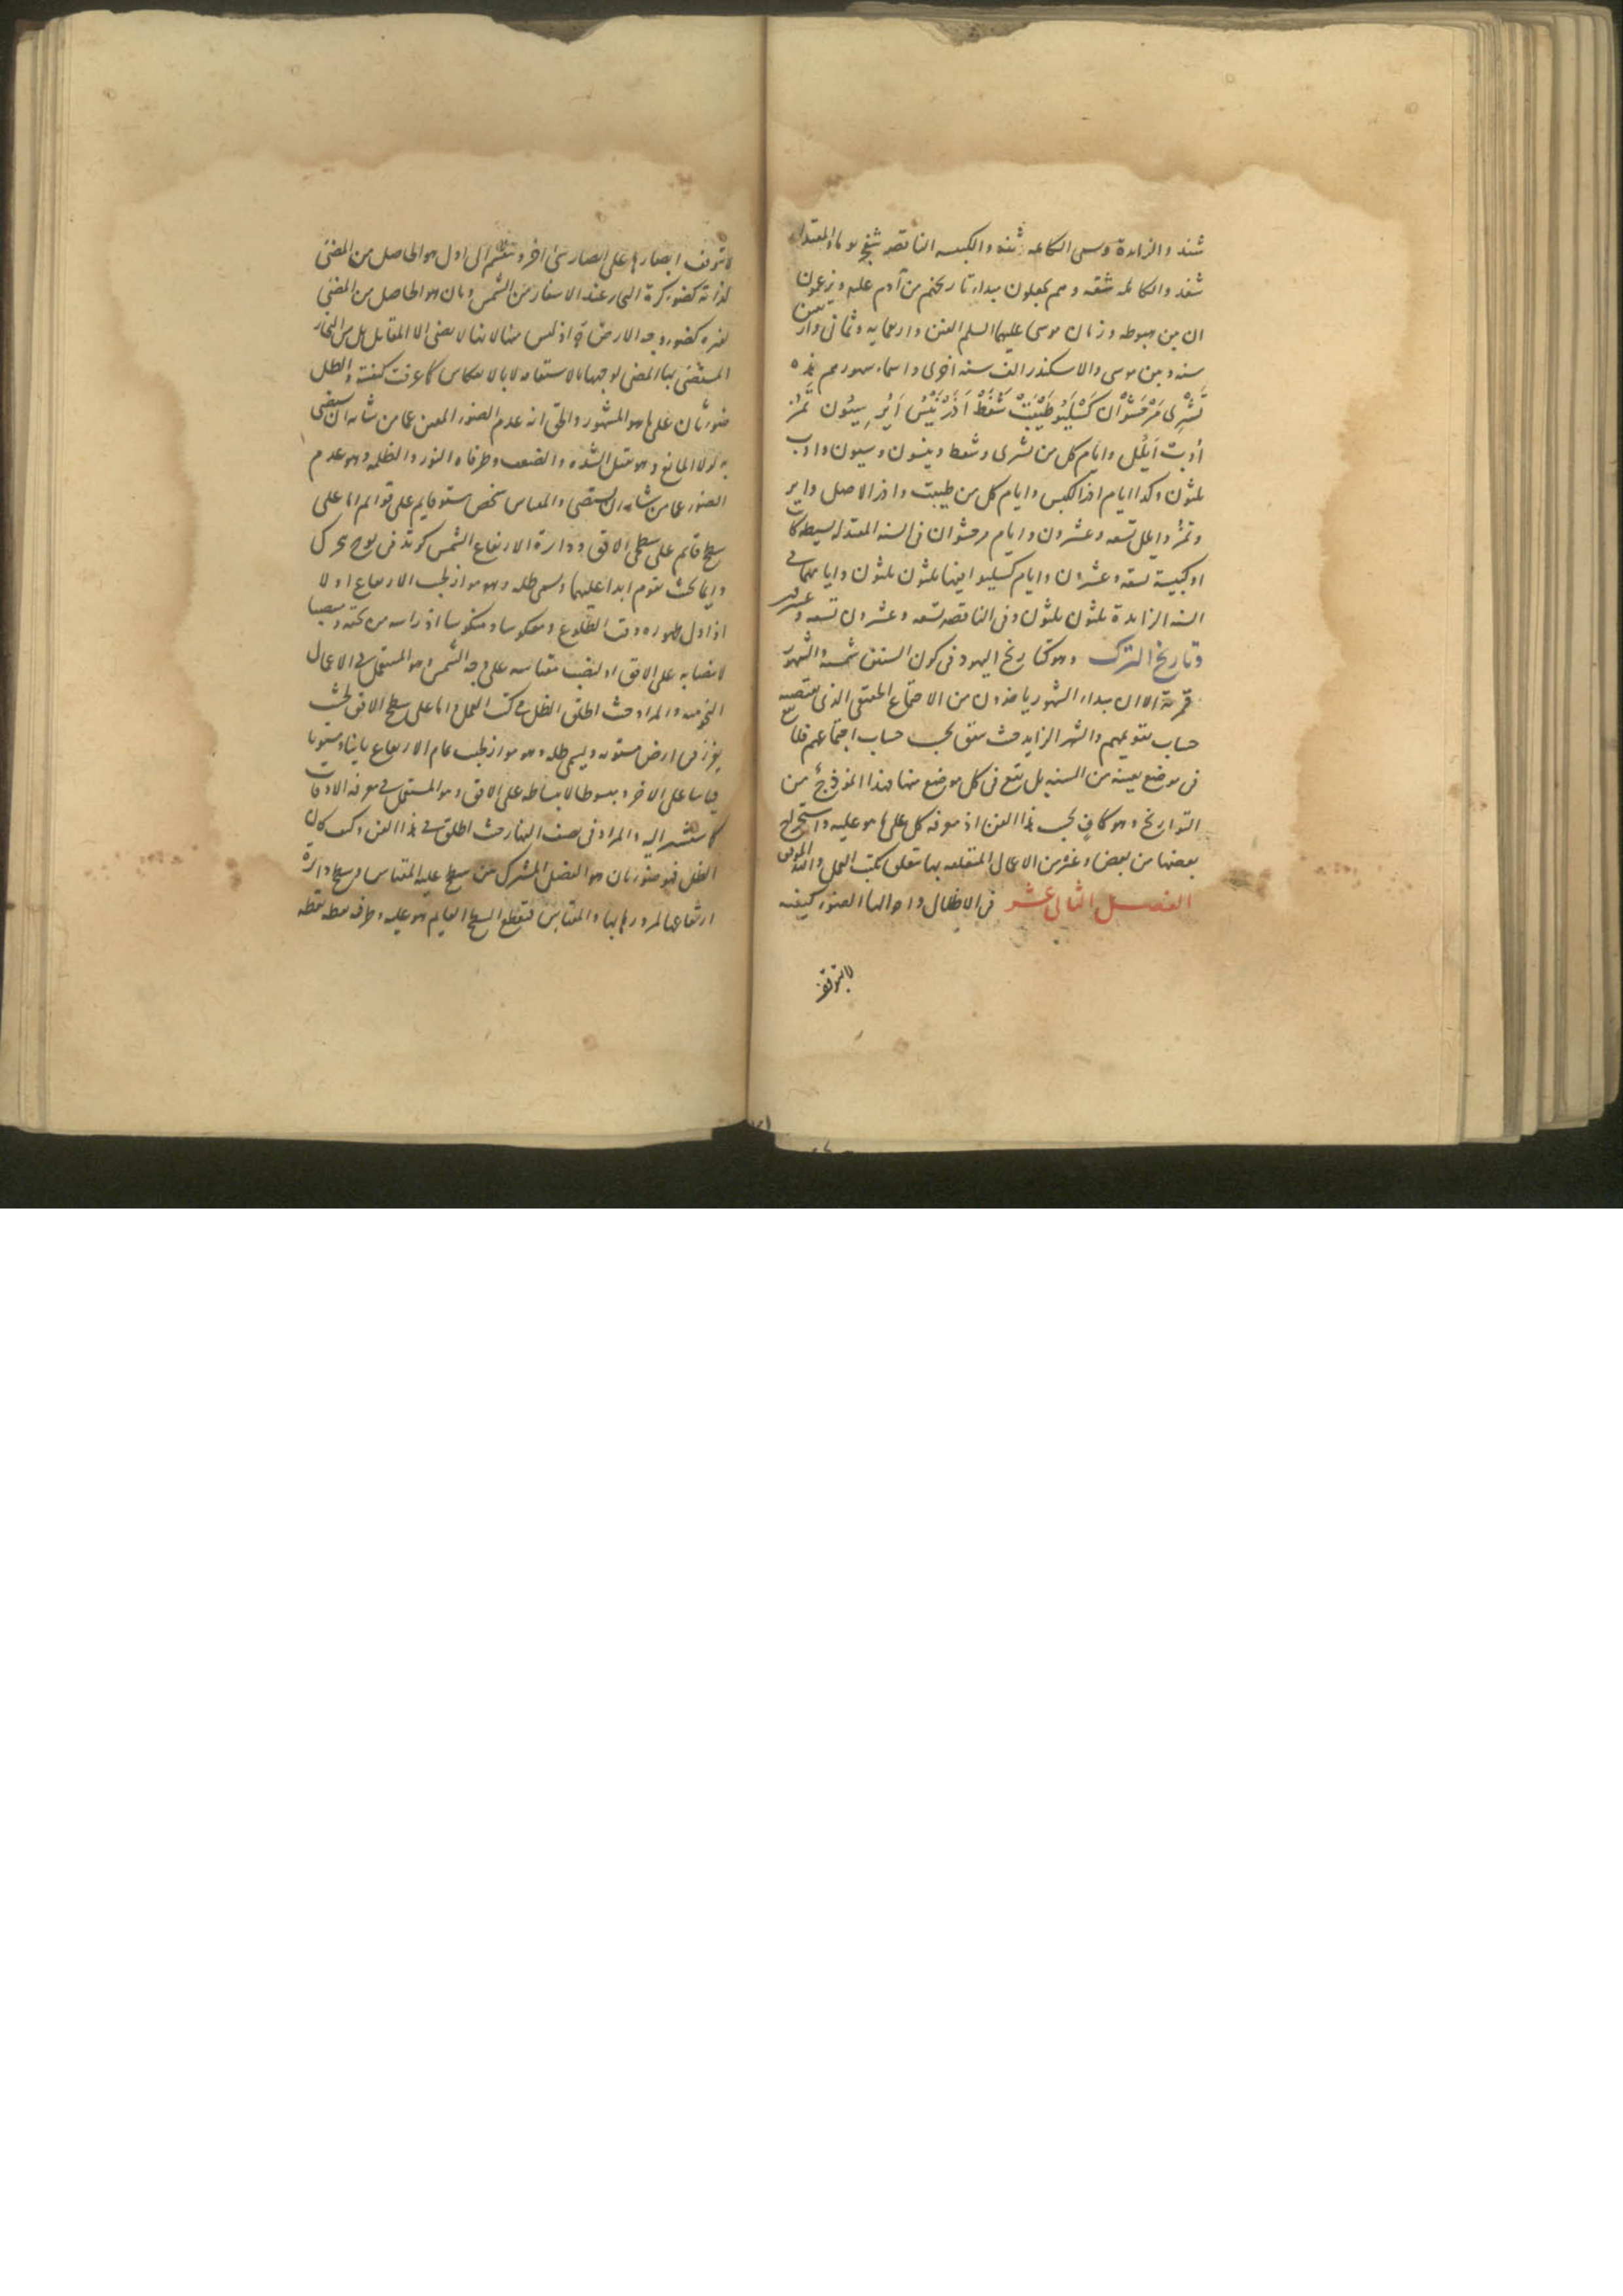 شند والزايدة وسمى الكاملة شنه والكبيسة الناقصة شفج يوما والمعتدلة
شفد والكاملة شفه وهم يجعلون مبداء تاريخهم من آدم عليه ويزعمون
ان بين هبوطه وزمان موسى عليهما السلم الفين واربعمايه وثمانى واربعين
سنه وبين موسى والاسكندر الف سنه اخرى واسماء شهورهم هذه
تشرى مرحشوان كسليو طيبت شفط اذر نيسن اير سيون تمز
أوب أيلل وايام كل من تشرى وشفط ونيسن وسيون واوب
ثلثون وكذا ايام اذر الكبس وايام كل من طيبت واذر الاصل واير
وتمز وايلل تسعه وعشرون وايام مرحشوان فى السنه المعتدله بسيطة كانت
او كبيسة تسعه وعشرون وايام كسليو فيها ثلثون وايامهما فى
السنه الزايدة ثلثون ثلثون وفى الناقصه تسعه وعشرون تسعه وعشرون
وتاريخ الترك وهو كتاريخ اليهود فى كون السنين شمسية والشهور
قمرية الا ان مبداء الشهور ياخذون من الاجتماع الحقيقى الذى يقتضيه
حساب تقويمهم والشهر الزايد حيث يتفق بحسب حساب اجتماعهم فلا يقع
فى موضع بعينه من السنه بل يقع فى كل موضع منها فهذا انموذج من
التواريخ وهو كاف بحسب هذا الفن اذ معرفة كل على ما هو عليه واستخراج
بعضها من بعض وغيره من الاعمال المتعلقه بها يتعلق بكتب العمل والله الموفق
الفصل الثانى عشر فى الاظلال واحوالها الضوء كيفية
لا يتوقف
لا يتوقف ابصارها على ابصار شئ اخر وينقسم الى اول هو الحاصل من المضئ
لذاته كضوء كرة البخار عند الاسفار من الشمس وثان هو الحاصل من المضئ
لغيره كضوء وجه الارض اذ ليس مقابلا لمضئ الا المقابل من البخار
المستضئ بها المضئ لوجهها بالاستقامه لا بالانعكاس كما عرفت كيفيته والظل
ضوء ثان على ما هو المشهور والحق انه عدم الضوء المعين عما من شانه ان يستضئ
به لولا المانع وهو يقبل الشده والضعف وطرفاه النور والظلمه وهو عدم
الضوء عما من شانه ان يستضئ والمقياس شخص مستو قايم على قوايم اما على
سطح قايم على سطحى الافق ودائرة الارتفاع الشمس كوتد فى لوح يحرك
دايما بحيث يقوم ابدا عليهما ويسمى ظله وهو موازٍ لجيب الارتفاع اولا
اذ اول ظهوره وقت الطلوع ومعكوسا ومنكوسا اذ راسه من تحته ومنتصبا
لانتصابه على الافق او لنصب مقياسه على وجه الشمس وهو المستعمل فى الاعمال
النجوميه والمراد حيث اطلق الظل فى كتب العمل واما على سطح الافق بحيث
يغرز فى ارض مستويه ويسمى ظله وهو موازٍ لجيب تمام الارتفاع ثانيا ومستويا
قياسا على الاخر ومبسوطا لانبساطه على الافق وهو المستعمل فى معرفة الاوقات
كما ستشير اليه والمراد فى نصف النهار حيث اطلق فى هذا الفن وكيف كان
الظل فهو ضوء ثان هو الفصل المشترك بين سطح عليه المقياس وسطح دائرة
ارتفاعها لمرورها بها والمقياس فيقطع السطح القايم هو عليه وطرفه نقطه